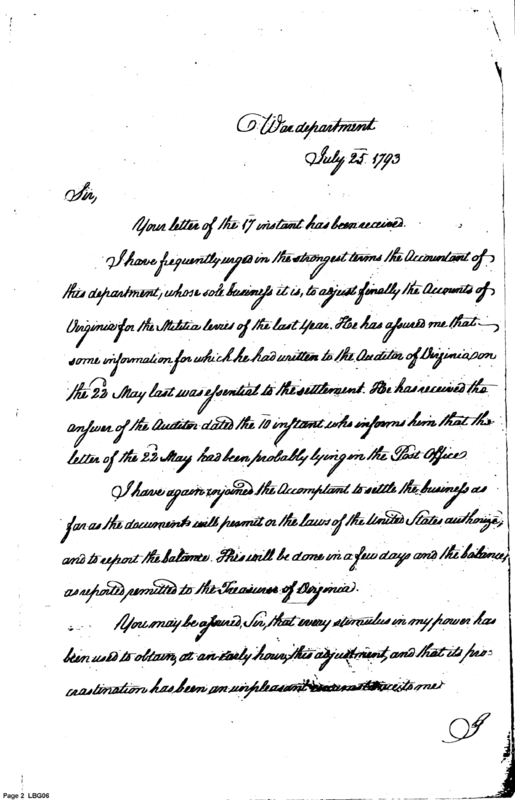 War department
July 25. 1793
Sir,
Your letter of the 17 instant has been received.
I have frequently urged in the strongest terms the Accountant of
this department, whose sole business it is, to adjust finally the Accounts of
Virginia for the Militia levies of the last year. He has assured me that
some information for which he had written to the Auditor of Virginia, on
the 22d May last was essential to the settlement. He has received the
answer of the Auditor dated the 10 instant who informs him that the
letter of the 22d May had been probably lying in the Post Office
I have again enjoined the Accomptant to settle the business as
far as the documents will permit or the laws of the United States authorize,
and to report the balance. This will be done in a few days and the balance,
as reported remitted to the Treasurer of Virginia.
You may be assured, Sir, that every stimulus in my power has
been used to obtain, at an early hour, this adjustment, and that its pro-
crastination has been an unpleasant circumstance to me
Page 2 LBG06